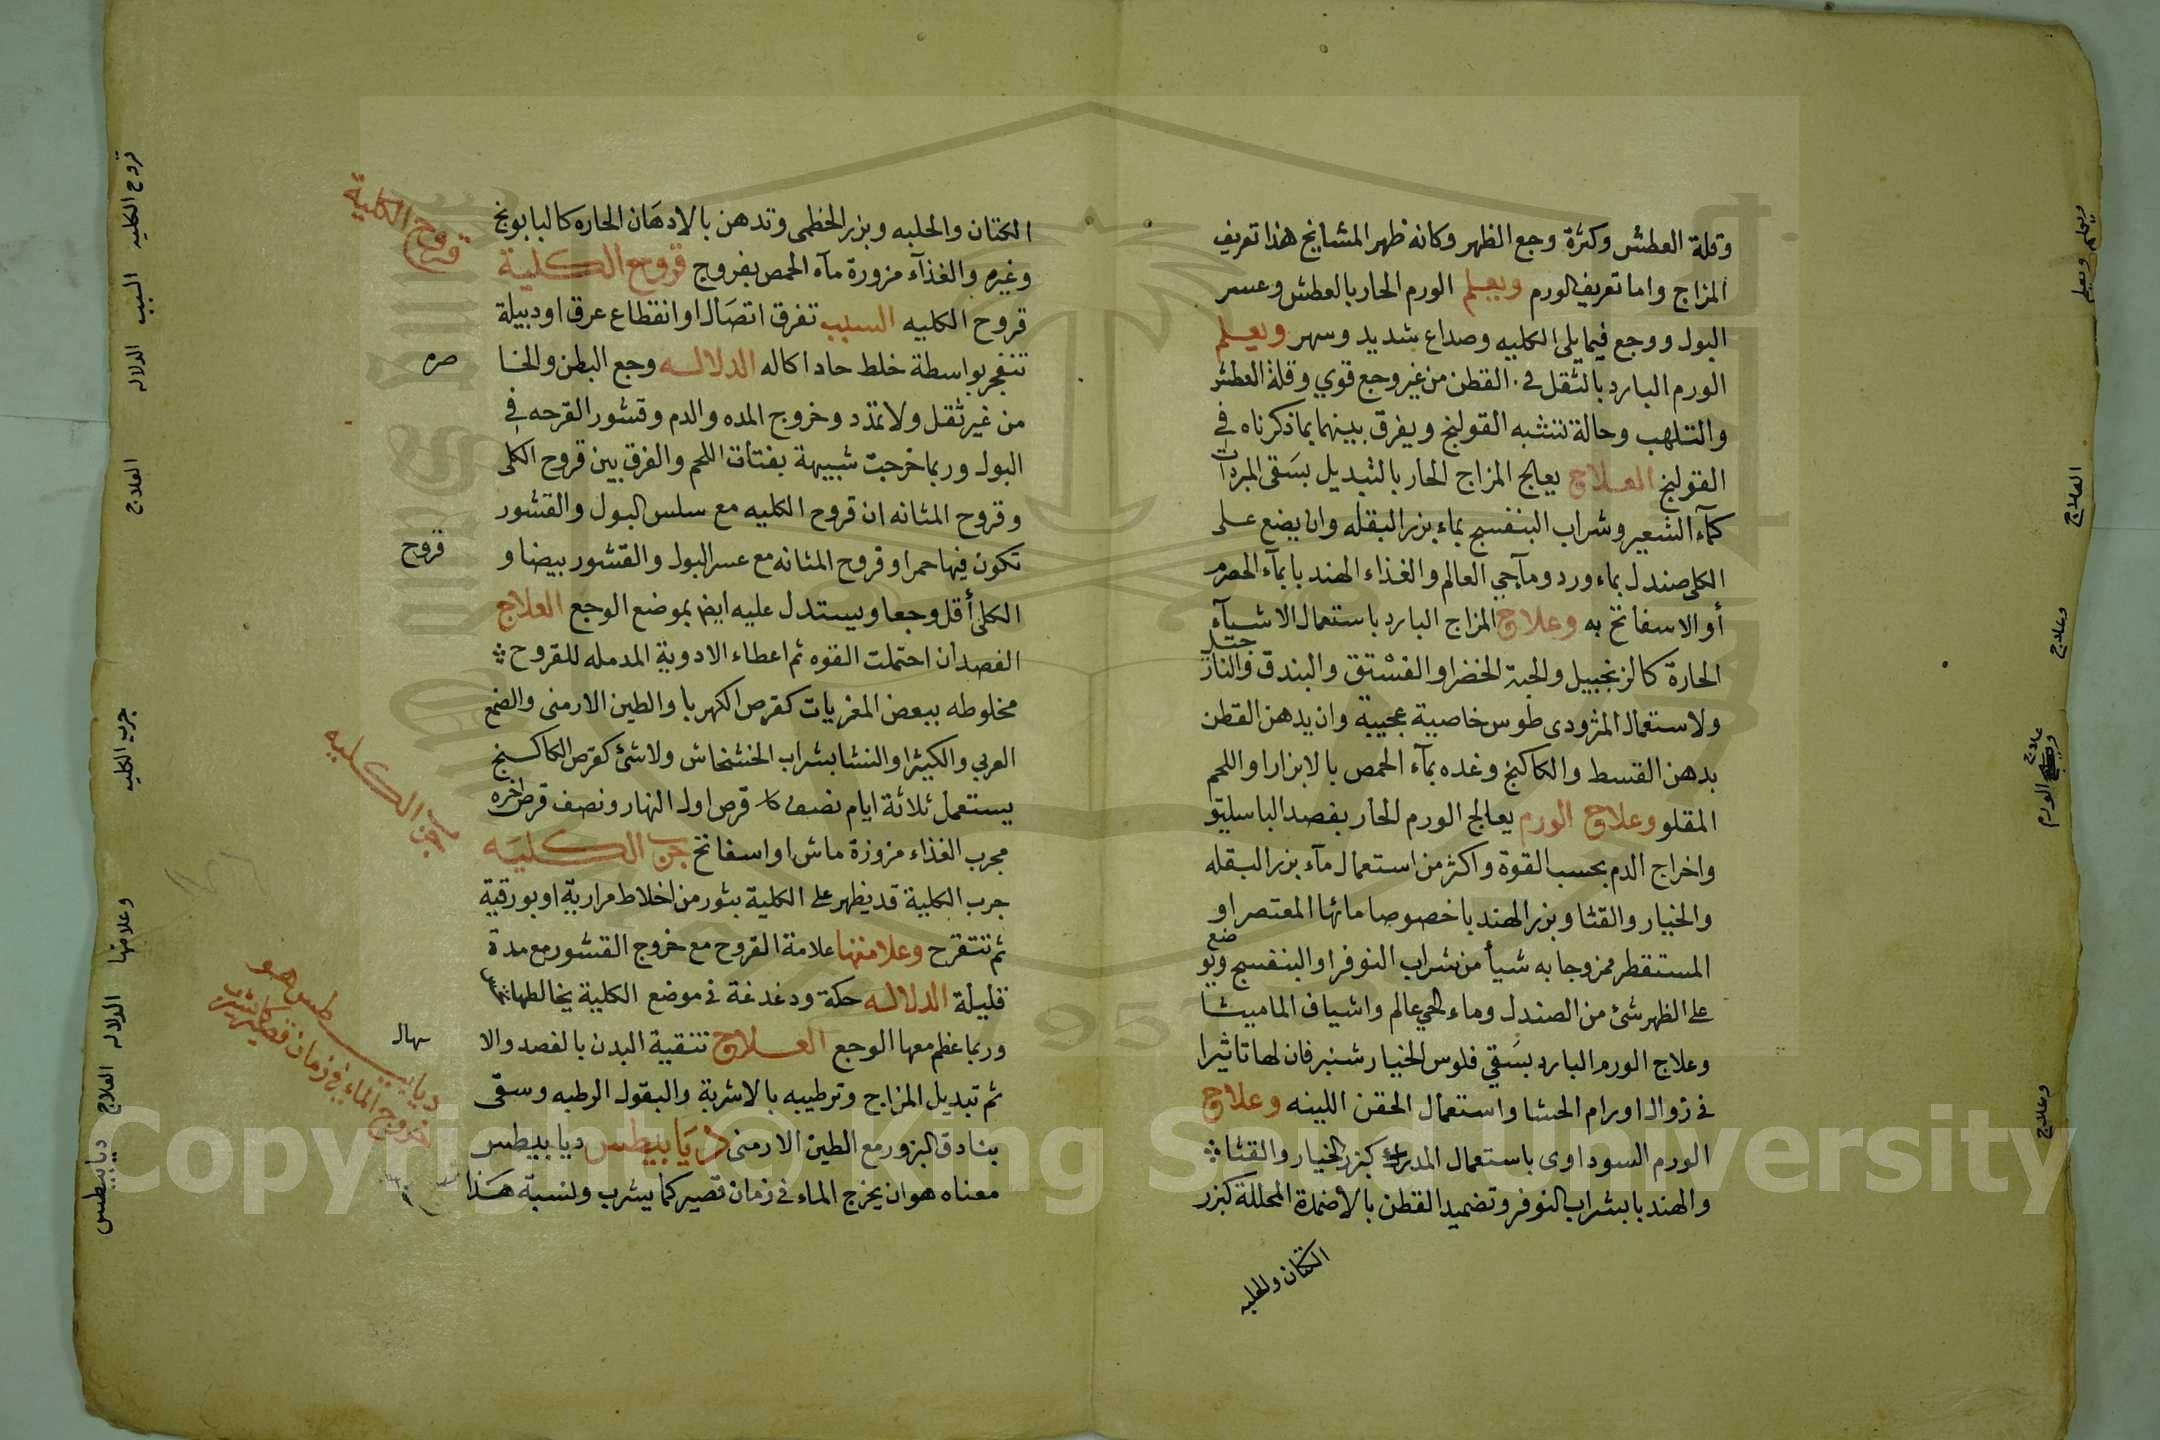 وقلة العطش وكثرة وجع الظهر وكانه ظهر المشايخ هذا تعريف
المزاج واما تعريف الورم ويعلم الورم الحار بالعطش وعسر
البول ووجع فيما يلى الكليه وصداع شديد وسهر ويعلم
الورم البارد بالثقل في القطن من غير وجع قوي وقلة العطش
والتلهب وحالة تشبه القولنج ويفرق بينهما بما ذكرناه في
القولنج العلاج يعالج المزاج الحار بالتبديل بسقى المبردات
كمآء الشعير وشراب البنفسج بماء بزر البقله وان يضع على
الكلى صندل بماء ورد ومآ حي العالم والغذاء الهندبا بمآء الحصرم
أو الاسفانخ به وعلاج المزاج البارد باستعمال الاشيآء
الحارة كالزنجبيل والحبة الخضرا والفستق والبندق والنار
جيل
ولاستعمال المثرودى طوس خاصية عجيبة وان يدهن القطن
بدهن القسط والكاكنج وغده بمآء الحمص بالابزار او اللحم
المقلو وعلاج الورم يعالج الورم الحار بفصد الباسليق
واخراج الدم بحسب القوة واكثر من استعمال مآء بزر البقله
والخيار والقثا وبزر الهندبا خصوصا مائها المعتصر او
المستقطر ممزوجا به شيأ من شراب النوفر او البنفسج ويو
ضع
على الظهر شئ من الصندل وماء الحي عالم واشياف الماميثا
وعلاج الورم البارد بسقي فلوس الخيار شنبر فان لها تاثيرا
في زوال اورام الحشا واستعمال الحقن اللينه وعلاج
الورم السوداوى باستعمال كبزر الخيار والقثا
والهندبا بشراب النوفر وتضميد القطن بالاضمدة المحللة كبزر
الكتان والحلبه
ويعلم
ويعلم
العلاج
وعلاج
علاج
الورم
وعلاج
الكتان والحلبه وبزر الخطمى وتدهن بالادهان الحاره كالبابونج
وغيره والغذآء مزورة مآء الحمص بفروج قروح الكلية
قروح الكليه السبب تفرق اتصال او انقطاع عرق او دبيلة
تنفجر بواسطة خلط حاد اكاله الدلاله وجع البطن والخا
صره
من غير ثقل ولا تمدد وخروج المده والدم وقشور القرحه في
البول وربما خرجت شبيهة بفتات اللحم والفرق بين قروح الكلى
وقروح المثانه ان قروح الكليه مع سلس البول والقشور
تكون فيها حمرا وقروح المثانه مع عسر البول والقشور بيضا و
قروح
الكلى أقل وجعا ويستدل عليه ايض بموضع الوجع العلاج
الفصد ان احتملت القوه ثم اعطاء الادوية المدمله للقروح
مخلوطه ببعض المغريات كقرص الكهربا والطين الارمنى والصمغ
العربي والكثيرا والنشا بشراب الخشخاش ولا شئ كقرص الكاكنج
يستعمل ثلاثة ايام نصف قرص اول النهار ونصف قرص اخره
مجرب الغذاء مزوزة ماش او اسفانخ جرب الكليه
جرب الكلية قد يظهر على الكلية بثور من اخلاط مرارية او بورقية
ثم تتقرح وعلامتها علامة القروح مع خروج القشور مع مدة
قليلة الدلاله حكة ودغدغة في موضع الكلية يخالطها
وربما عظم معها الوجع العلاج تنقية البدن بالفصد والا
سهال
ثم تبديل المزاج وترطيبه بالاشربة والبقول الرطبه وسقى
بنادق البزور مع الطين الارمنى ديابيطس ديابيطس
معناه هو ان يخرج الماء في زمان قصير كما يشرب ونسبة هذا
قروح الكلية
جرب الكليه
ديابيطس هو
خروج الماء في زمان قصير كما يشرب
قروح الكليه
السبب
الدلاله
العلاج
جرب الكليه
وعلامتها
الدلاله
العلاج
ديابيطس
Copyright © King Saud University